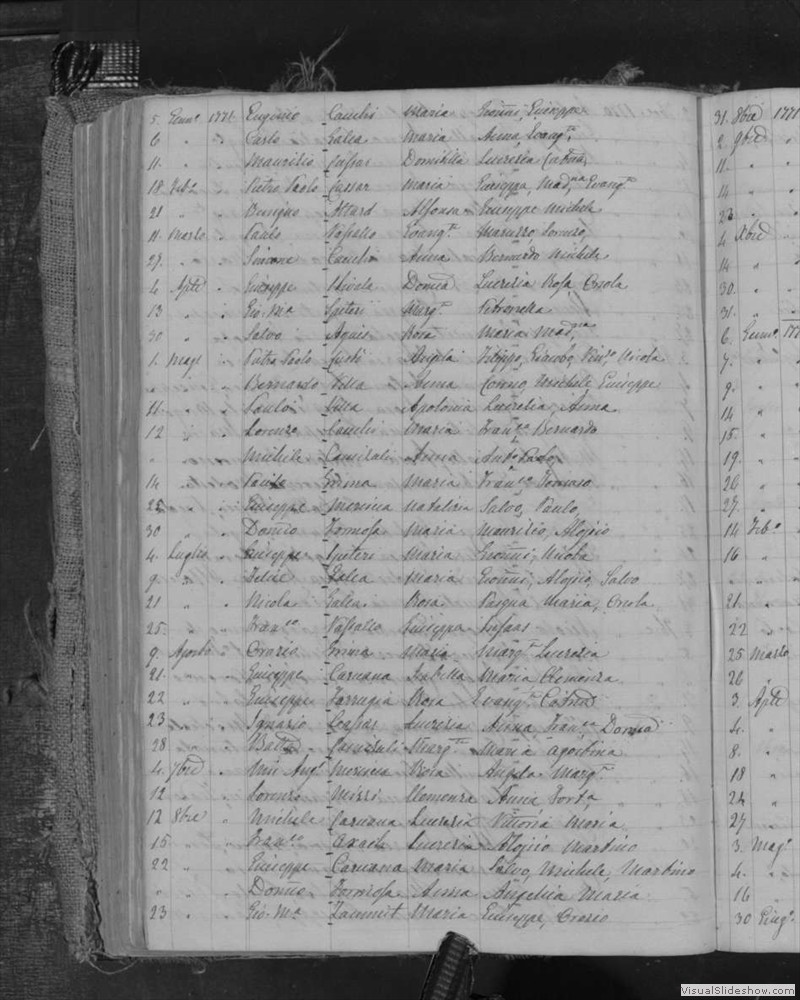 5. Genn.o 1771 Eugenio Cauchi Maria Gioanni, Giuseppe
6 " " Carlo Galea Maria Anna, Evang.ta
11 " " Maurizio Caspar Domitilla Lucrezia
18 Feb.o " Pietro Paolo Cassar Maria Giuseppa, Mad.na Evang.ta
21 " " Benigno Attard Alfonsa Giuseppe Michele
11. Marzo " Paulo Vassallo Evang.ta
27. " " Simone Cauchi Anna Bernardo Michele
4 Aple " Giuseppe Domca Lucrezia Rosa, Orsola
13 " " Gio: Ma Spiteri Marg.ta Petronella
30 " " Salvo Agius Rosa Maria Mad.na
1. Mag.o " Pietro Paolo Angela Filippo, Giacobo, Nicola
" " " Bernardo Villa Anna Michele Giuseppe
11. " " Paulo Villa Apolonia Lucrezia, Anna
12 " " Lorenzo Cauchi Maria Fran.co Bernardo
" Michele Camilleri Anna Ant.o Paolo
14 " " Maria Fran.co Tomaso
25 " " Giuseppe Messina Natalizia Salvo, Paulo,
30 " " Domco Formosa Maria Maurizio, Alojsio
4. Luglio " Giuseppe Spiteri Maria Gioanni, Nicola
9 " " Felice Galea Maria Gioanni, Alojsio, Salvo
21 " " Nicola Galea Rosa Pasqua Maria, Orsola
25. " " Fran.co Vassallo Giuseppa
9. Agosto " Orazio Maria Marg.ta Lucrezia
21. " " Giuseppe Caruana Isabella Maria Clemenza
22 " " Giuseppe Farrugia Rosa Evang.ta Catna
23 " " Ignazio Caspar Lucrezia Anna Fran.ca Domca
28 " " Camilleri Marg.ta Maria Agostina
4. 7bre " Mic: Ang.o Messina Rosa Angela Marg.ta
12 " " Lorenzo Mizzi Clemenza Anna
12 8bre " Michele Caruana Lucrezia Vittoria Maria
15 " " Fran.co Axach Lucrezia Alojsio Martino
22 " " Giuseppe Caruana Maria Salvo, Michele, Martino
" " " Domco Formosa Anna Angelica Maria
23 " " Gio: Ma Zammit Maria Giuseppe, Orazio
31. 8bre 1771
2. 9bre "
11. "
14 "
23 "
4 Xbre "
14 "
30. "
31. "
6. Genn.o 177
7. "
9. "
14 "
15. "
19. "
26 "
27. "
14 Feb.o
16 "
" "
21. "
22 "
25 Marzo
26 "
3. Aple
4. "
8. "
18 "
24 "
27 "
3. Mag.o
4. "
16 "
30 Giug.o
VisualSlideshow.com